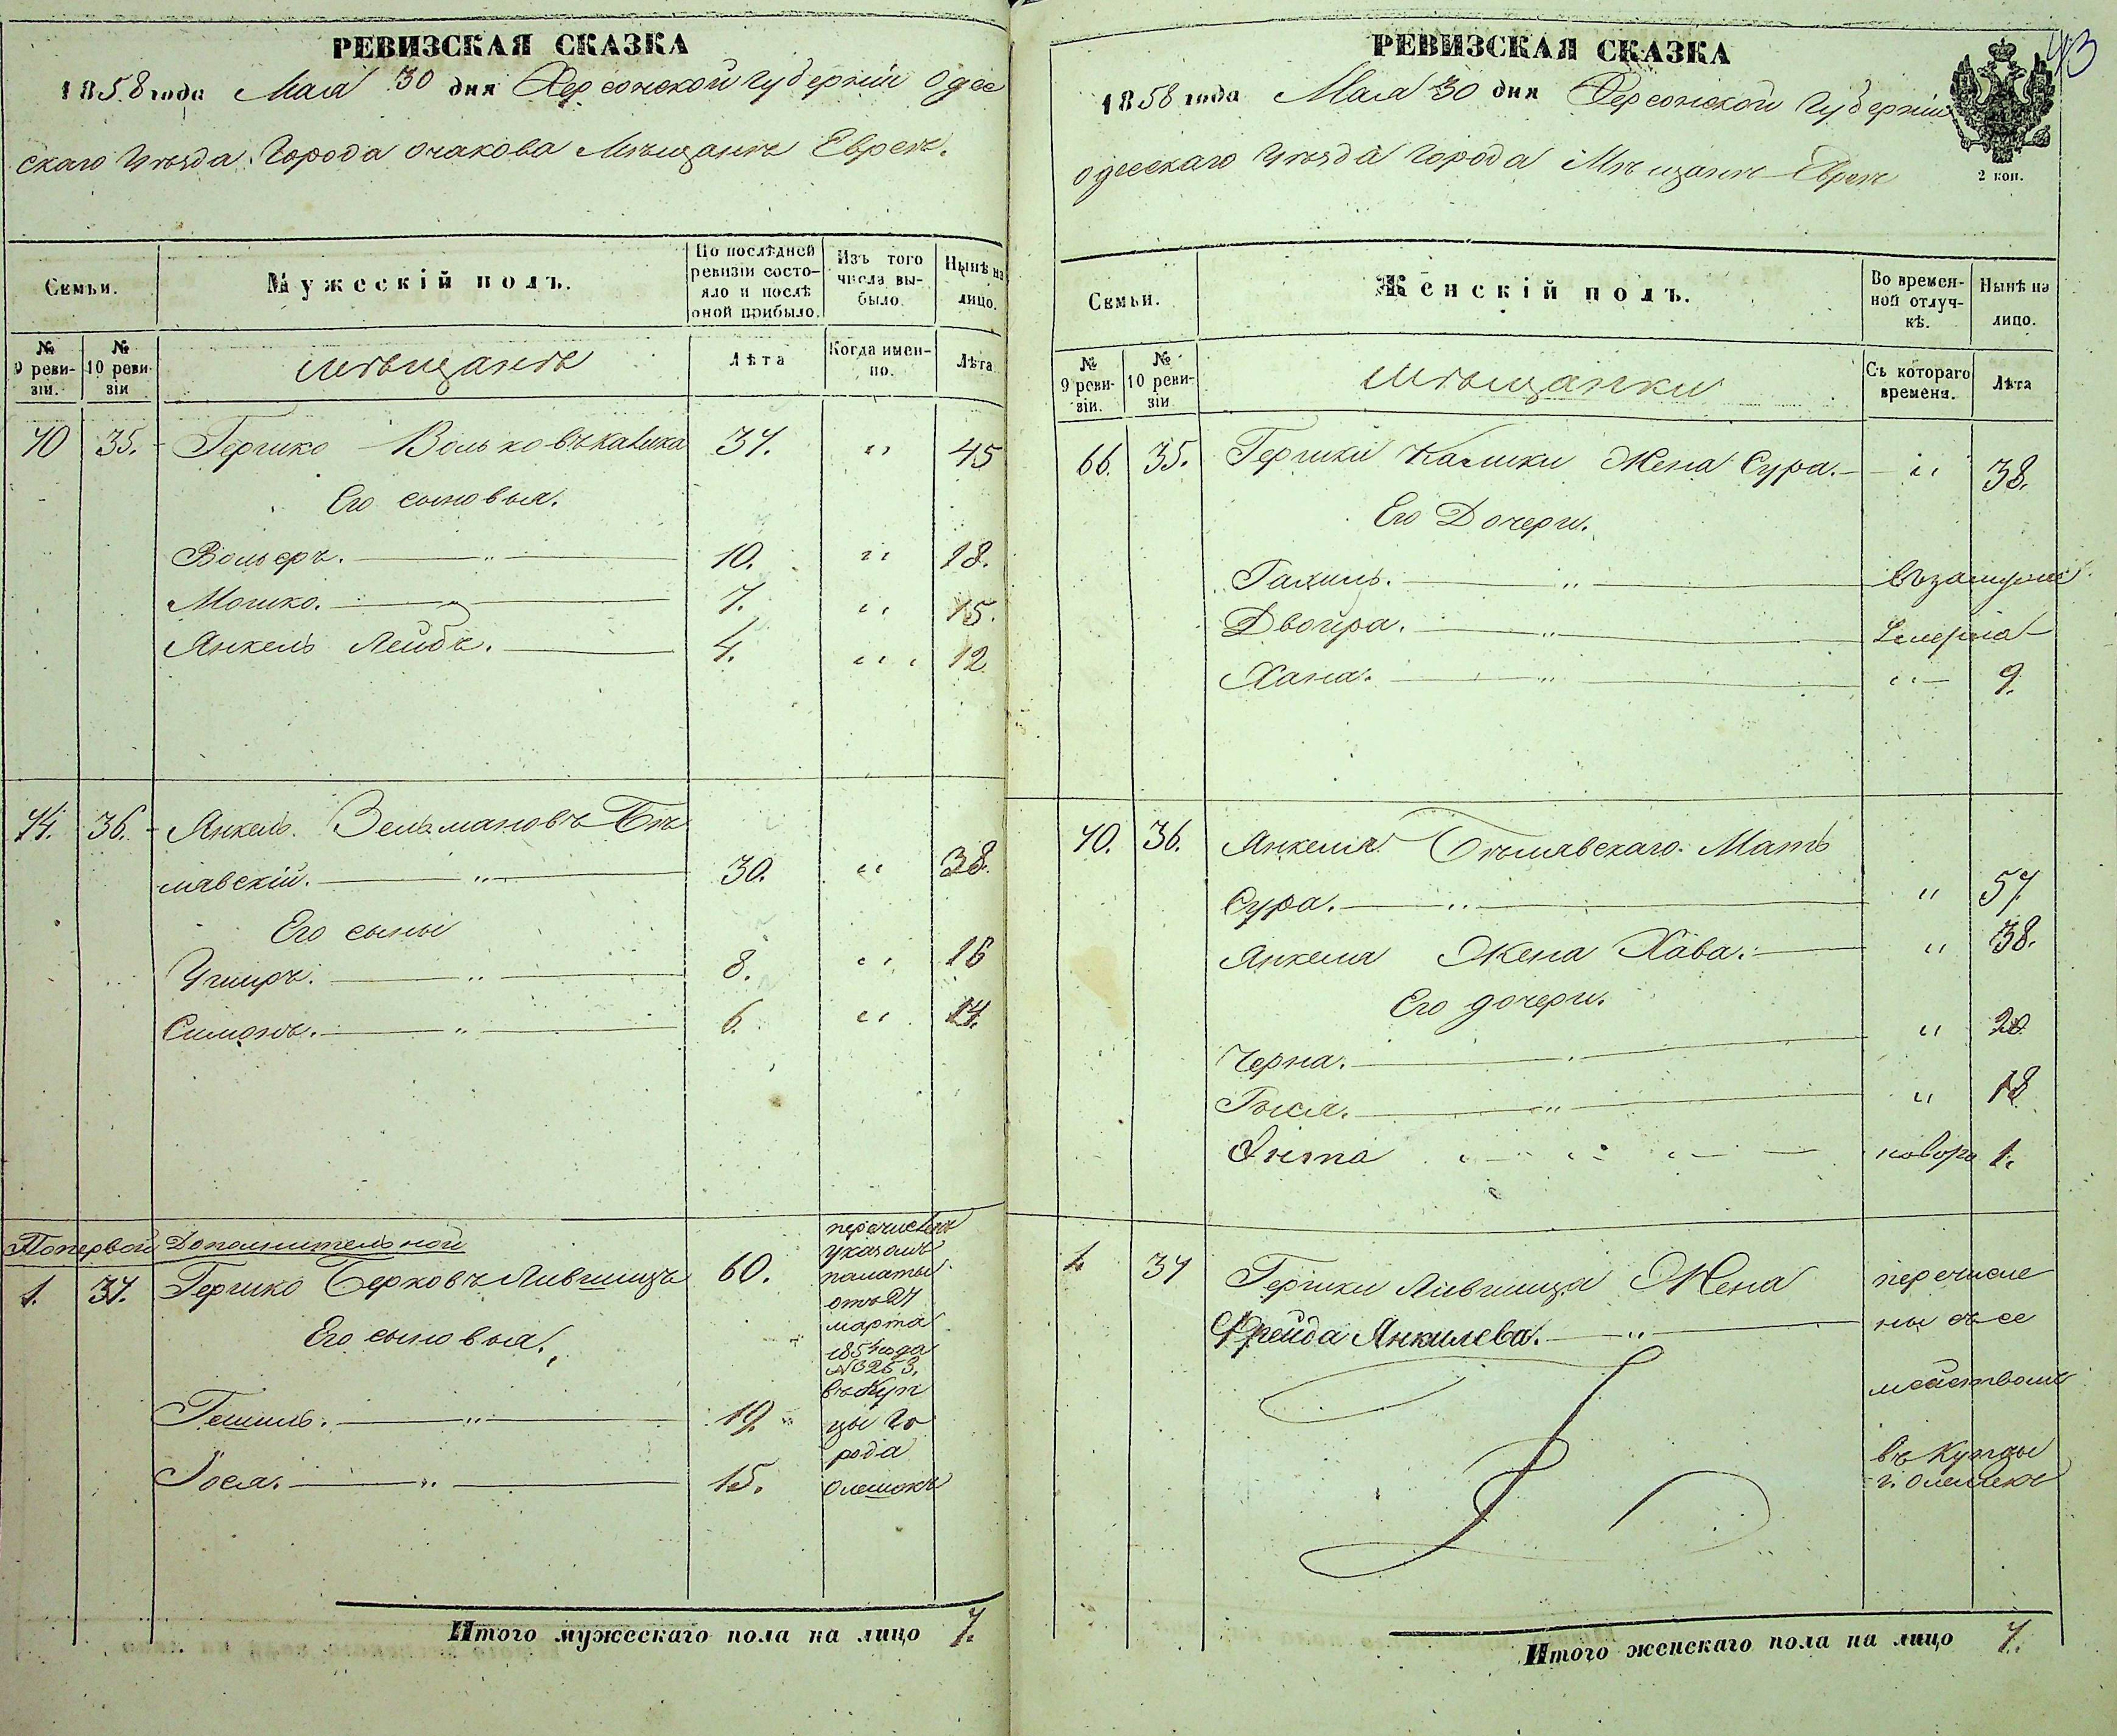 РЕВИЗСКАЯ СКАЗКА
1858 года Мая 30 дня Херсонской Губерніи Одес
скаго Уѣзда Города Очакова Мѣщанъ Евреевъ.
Семьи.
Мужескій полъ.
По послѣдней ревизіи состояло и послѣ оной прибыло.
Изъ того числа выбыло.
Нынѣ на лицо.
№ 9 ревизіи.
№ 10 ревизіи
мѣщанъ
Лѣта
Когда именно.
Лѣта
70 35. Гершко Вольковъ Калика 37. " 45
Его сыновья.
Вольеръ. " 10. " 18.
Мошко. " 7. " 15.
Янкель Лейбъ. 4. " 12
74. 36. Янкель Зельмановъ Бѣ
лявскій. " 30. " 38.
Его сыны
Ушеръ. " 8. " 16
Симонъ. " 6. " 14.
По первой Дополнительной
1. 37. Гершко Берковъ Лившицъ 60.
Его сыновья.
Гешиль. " 19.
Іосл. " 15.
перечислены
указомъ
палаты
отъ 27
марта
185 года
№ 3253.
въ Куп
цы Го
рода
Олешекъ
Итого мужескаго пола на лицо 7.
73
РЕВИЗСКАЯ СКАЗКА
1858 года Мая 30 дня Херсонской Губерніи
Одесскаго Уѣзда Города Мѣщанъ Евреевъ
2 коп.
Семьи.
Женскій полъ.
Во временной отлучкѣ.
Нынѣ на лицо.
№ 9 ревизіи.
№ 10 ревизіи
мѣщанки
Съ котораго времени.
Лѣта
66. 35. Гершки Калики Жена Сура. " 38.
Его Дочери.
" въ замужес.
Двойра. " умерла
Хана. " " 9.
70. 36. Янкеля Бѣлявскаго Мать
Сура. " " 57.
Янкеля Жена Хава. " 38.
Его дочери.
Черна. " 20
" " 18
Энта " " " новоро 1.
1. 37 Гершки Лившица Жена
Фрейда Янкилева. "
перечисле
ны съ се
мействомъ
въ Купцы
г. Олешекъ
Итого женскаго пола на лицо 7.